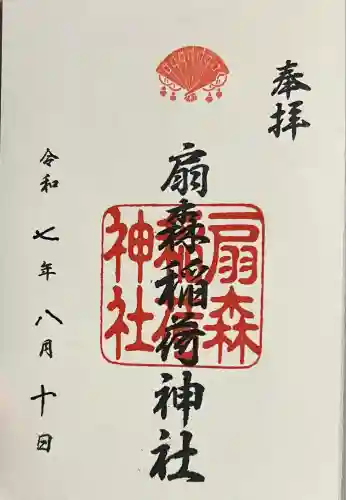 奉拝
扇森稲荷神社
扇森稲荷神社
令和七年八月十日